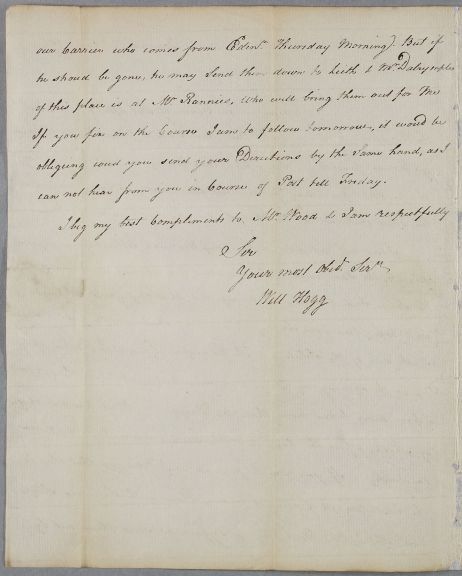 our Carrier who comes from Edinr. Thursday Morning). But if
he should be gone, he may send them down to Leith & Mr. Dalrymple
of this place is at Mr. Rannies, who will bring them out for me
If you fix on the Course I am to follow tomorrow, it woud be
obligeing coud you send your Directions by the same hand, as I
can not hear from you in Course of Post till Friday.
I beg my best Compliments to Mr. Wood & I am respectfully
Sir
Your most obedt. Servt.
Will Hogg